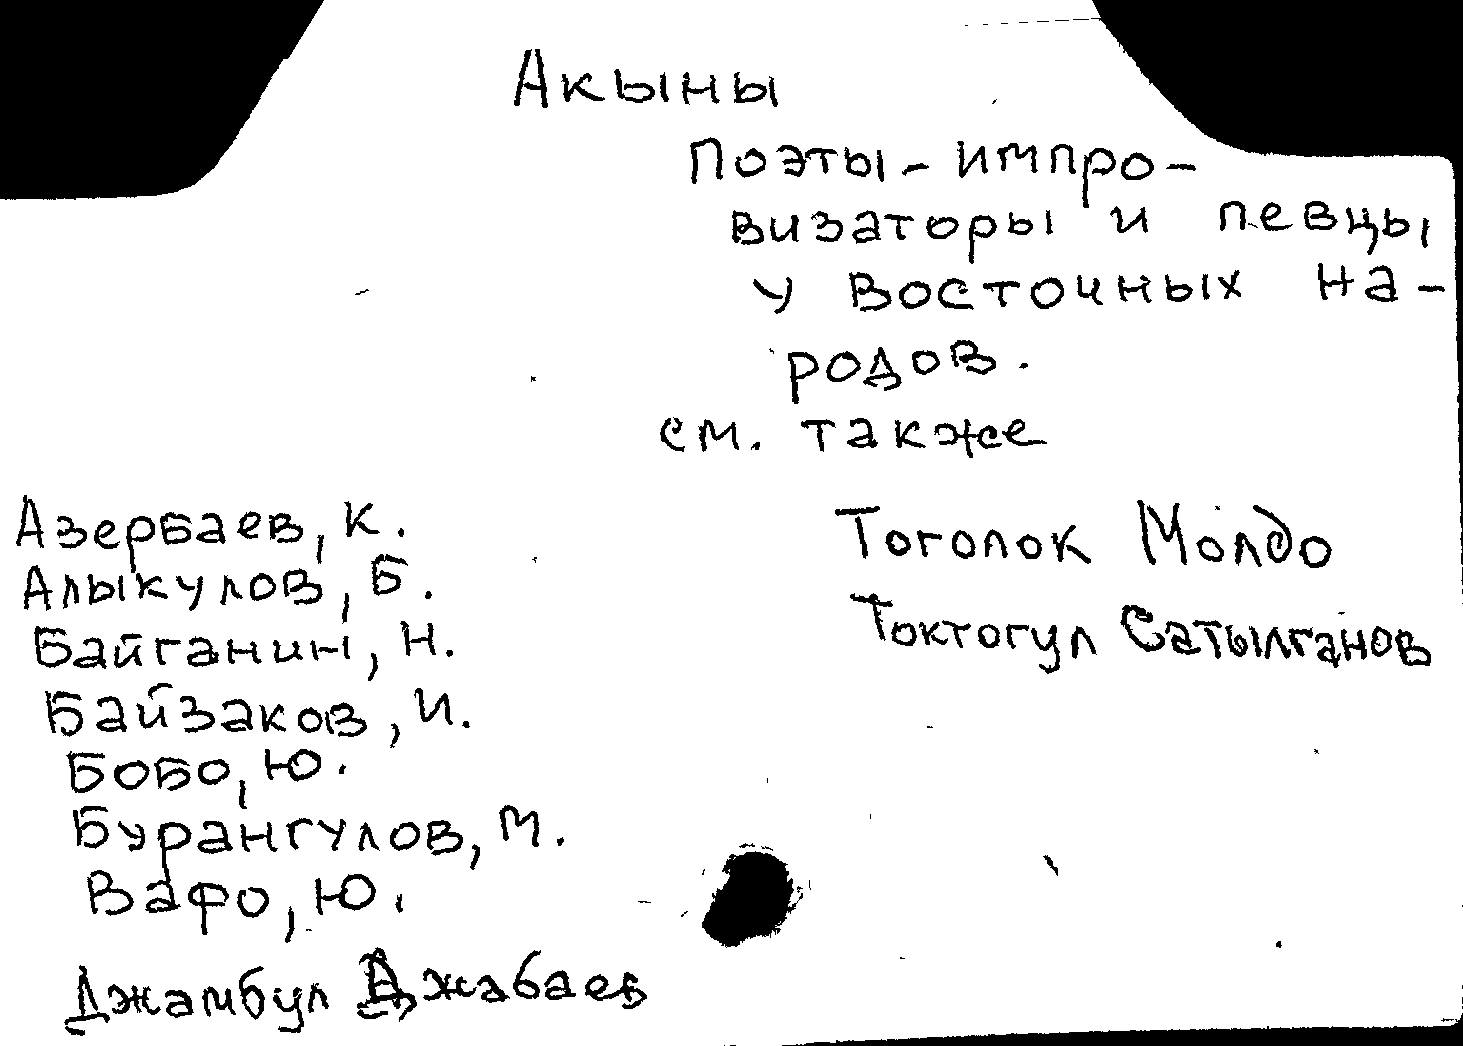 Акыны
Поэты-импро-
визаторы и певцы
у восточных на-
родов.
см. также
Азербаев, К.
Алыкулов, Б.
Байганин, Н.
Байзаков, И.
Бобо, Ю.
Бурангулов, М.
Вафо, Ю.
Джамбул Джабаев
Тоголок Молдо
Токтогул Сатылганов